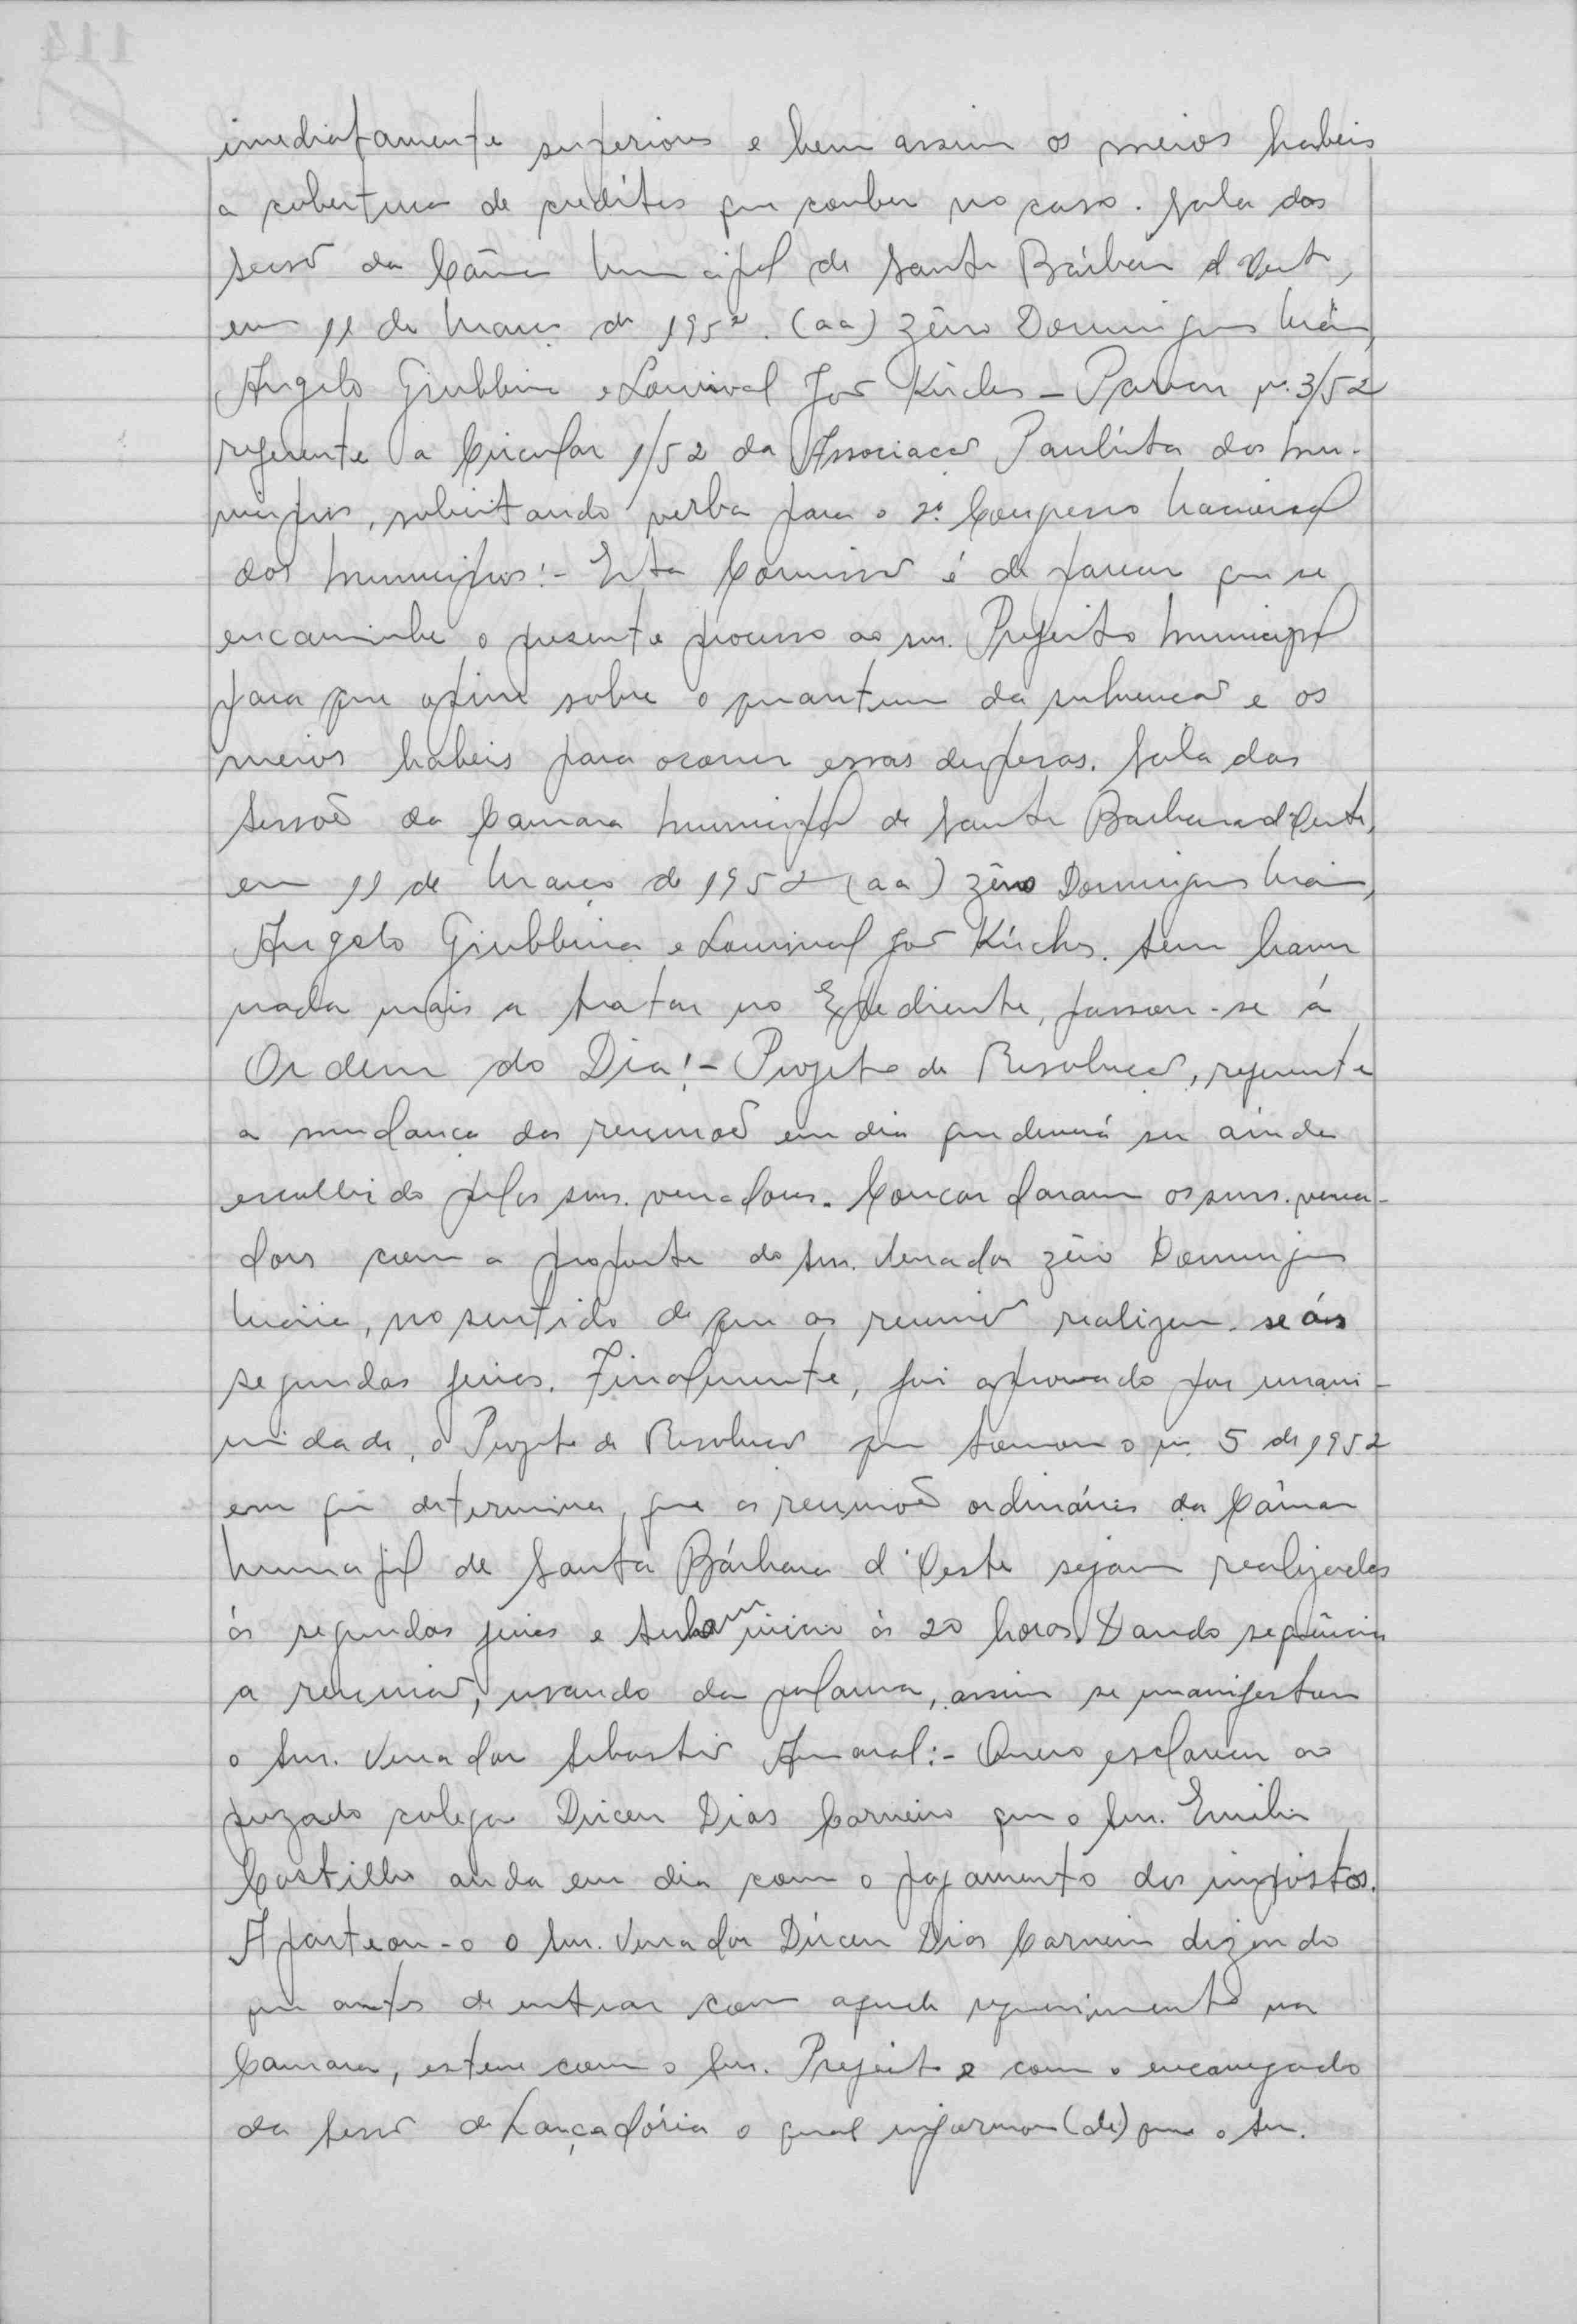 imediatamente superiores e bem assim os meios habeis
a cobertura de créditos que couber no caso. Sala das
Sessões da Câmara Municipal de Santa Bárbara d'Oeste,
em 11 de Março de 1952. (aa) Zêno Domingues Maia,
Angelo Giubbina e Lourival José Kirches - Parecer n. 3/52
referente a Circular 1/52 da Associação Paulista dos Mu-
nicípios, solicitando verba para o 2º Congresso Nacional
dos Municípios:- Esta Comissão é de parecer que se
encaminhe o presente processo ao snr. Prefeito Municipal
para que opine sobre o quantum da subvenção e os
meios habeis para ocorrer essas despesas. Sala das
Sessões da Camara Municipal de Santa Barbara d'Oeste,
em 11 de Março de 1952 (aa) Zêno Domingues Maia,
Angelo Giubbina e Lourival José Kirches. Sem haver
nada mais a tratar no Expediente, passou-se á
Ordem do Dia:- Projeto de Resolução, referente
a mudança das reuniões em dia que deverá ser ainda
escolhido pelos snrs. vereadores. Concordaram os snrs. verea-
dores com a proposta do Snr. Vereador Zêno Domingues
Maia, no sentido de que as reuniões realizem-se ás
segundas feiras. Finalmente, foi aprovado por unani-
midade, o Projeto de Resolução que tomou o n. 5 de 1952
em que determina, que as reuniões ordinárias da Câmara
Municipal de Santa Bárbara d'Oeste sejam realizadas
ás segundas feiras e tenham inicio ás 20 horas. Dando sequência
a reunião, usando da palavra, assim se manifestou
o Snr. Vereador Sebastião Amaral:- Quero esclarecer ao
prezado colega Dirceu Dias Carneiro que o Snr. Emilio
Castilho anda em dia com o pagamento dos impostos.
Aparteou-o o Snr. Vereador Dirceu Dias Carneiro dizendo
que antes de entrar com aquele requerimento na
Camara, esteve com o Snr. Prefeito e com o encarregado
da Sessão de Lançadória o qual informou (de) que o Snr.